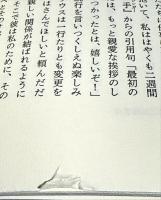 、私ははやくも二週間
手』からの引用句「最初の
、もっと親愛な挨拶のし
つかったとは、嬉しいぞ！」
行を言いつくしえぬ楽しみ
ウスは一行たりとも変更を
はさんでほしいと頼んだだ
親しい関係が結ばれるように
そこで彼は私のために、その